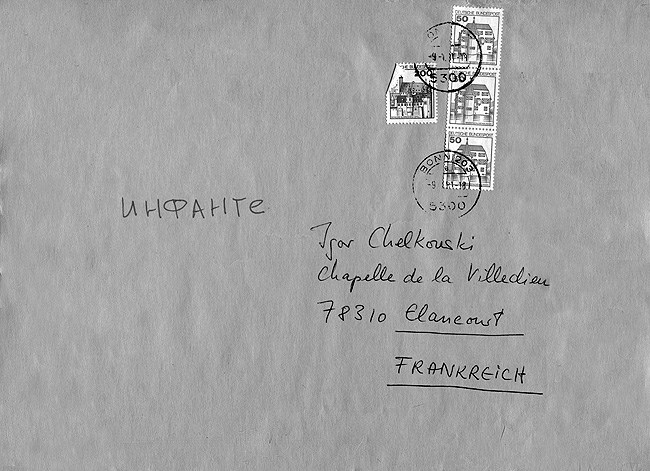 50
DEUTSCHE BUNDESPOST
200
5300
50
BONN 203
5300
ИНФАНТЕ
Igor Chelkowski
Chapelle de la Villedieu
78310 Elancourt
FRANKREICH